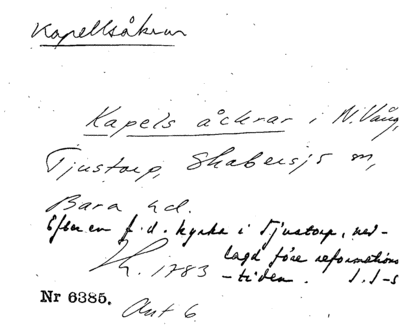 Kapellsåkrar
Kapels åckrar i N. Vång,
Tjustorp, Skabersjö sn,
Bara hd.
Efter en f.d. kyrka i Tjustorp, ned-
lagd före reformations
-tiden. I. I-s
Kh. 1783
Nr 6385.
Akt 6